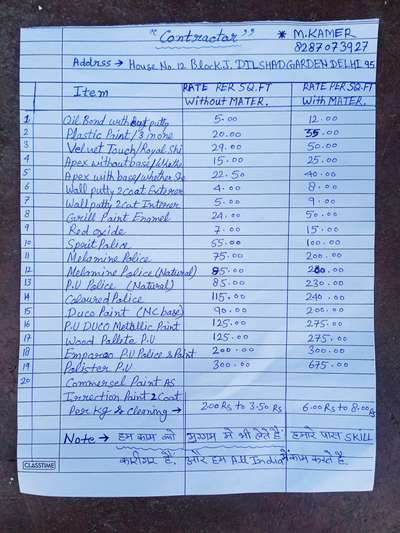 "Contractor" * M.KAMER
8287073927
Addrss → House No. 12 Block.J. DILSHAD GARDEN DELHI 95
Item RATE PER SQ.FT Without MATER. RATE PER SQ.FT With MATER.
1 Oil Bond with putty 5.00 12.00
2 Plastic Paint/3 none 20.00 35.00
3 Velvet Touch/Royal Shi 29.00 50.00
4 Apex without base/whethe 15.00 25.00
5 Apex with base/whether She 22.50 40.00
6 Wall putty 2 coat Exterier 4.00 8.00
7 Wall putty 2 cat Interier 5.00 9.00
8 Grill Paint Enamel 24.00 50.00
9 Red oxide 7.00 15.00
10 Sprit Police 55.00 100.00
11 Melamine Police 75.00 200.00
12 Melamine Police (Natural) 85.00 200.00
13 P.U Police (Natural) 85.00 230.00
14 Coloured Police 115.00 240.00
15 Duco Paint (MC base) 90.00 200.00
16 P.U DUCO Metallic Paint 125.00 275.00
17 Wood Pallete P.U 125.00 275.00
18 Emparao P.U Police & Paint 200.00 300.00
19 Polister P.U 300.00 675.00
20 Commersel Paint AS
Irrection Paint 2 Coat
Per Kg & cleaning → 2.00 Rs to 3.50 Rs 6.00 Rs to 8.00 Rs
Note → हम काम को मुगगम में भी लेते हैं हमारे पास SKILL
कारीगर हैं, और हम All India में काम करते हैं.
CLASSTIME